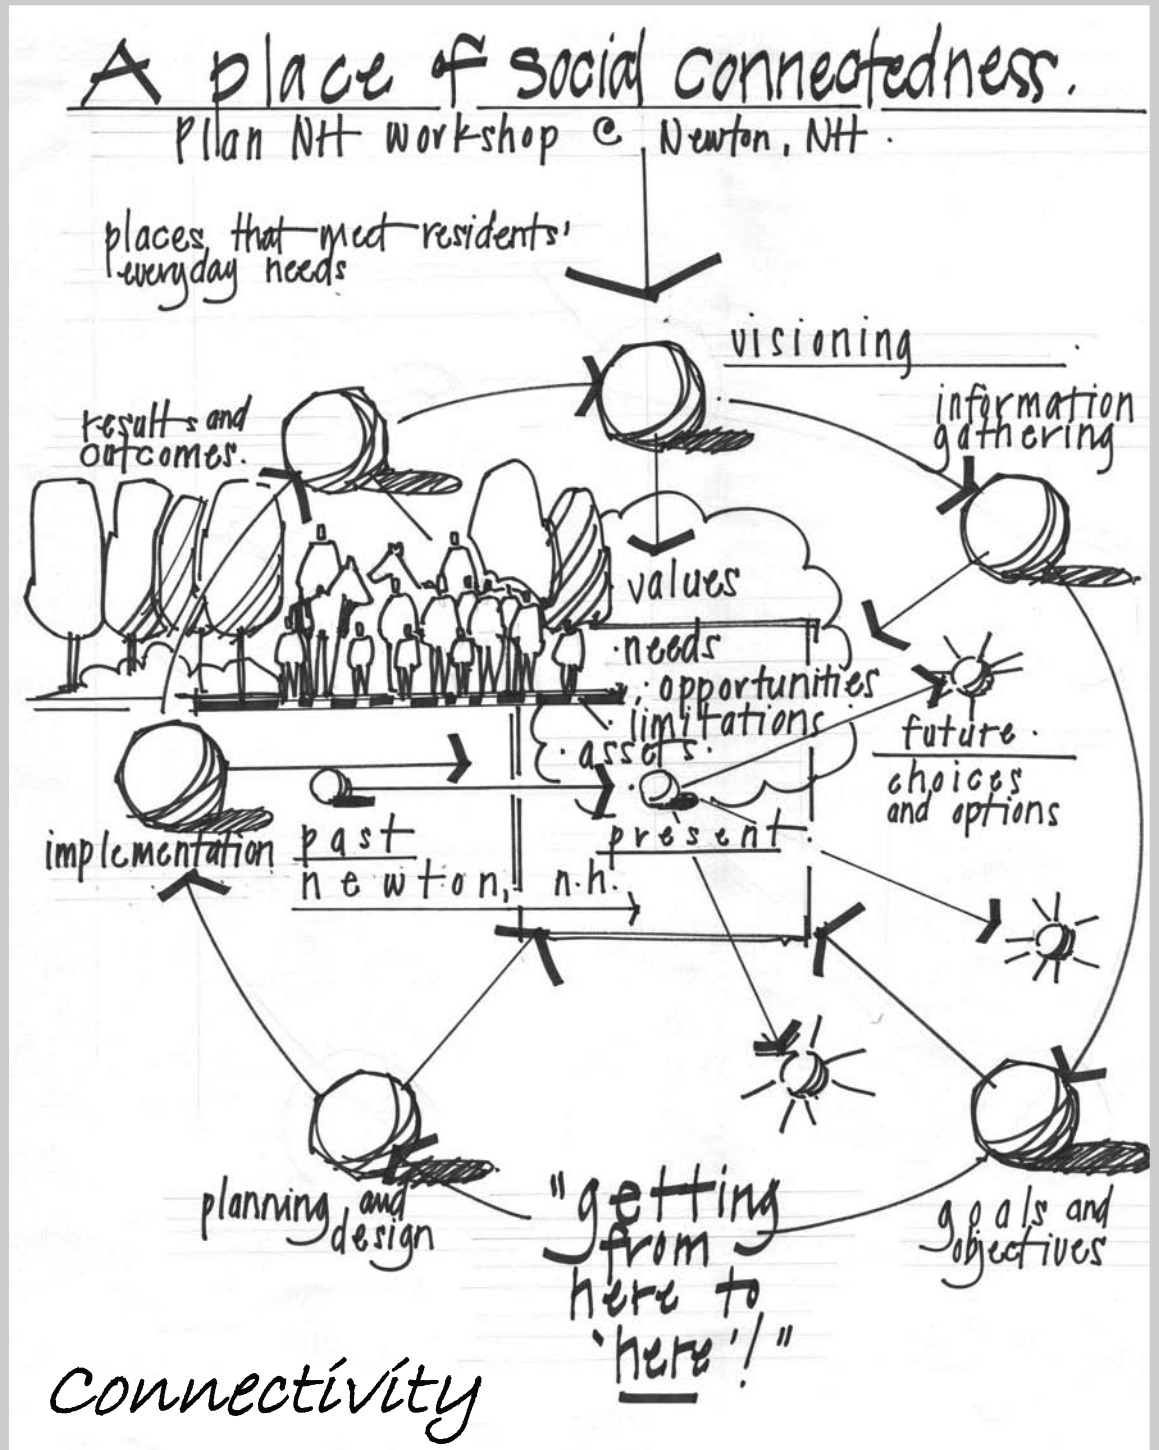 A place of social connectedness.
Plan NH workshop @ Newton, NH.
places that meet residents'
everyday needs
visioning
information
gathering
results and
outcomes.
values
· needs
· opportunities
· limitations
· assets ·
future ·
choices
and options
implementation
past
present
newton, n.h.
planning and
design
"getting
from
here to
'here'!"
goals and
objectives
Connectivity